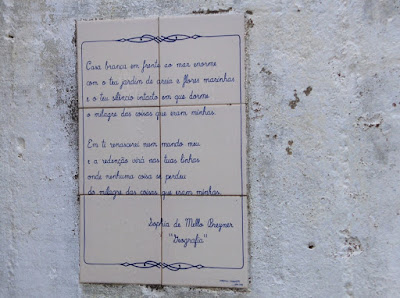 Casa branca em frente ao mar enorme
com o teu jardim de areia e flores marinhas
e o teu silêncio intacto em que dorme
o milagre das coisas que eram minhas.
Em ti renascerei num mundo meu
e a redenção virá nas tuas linhas
onde nenhuma coisa se perdeu
do milagre das coisas que eram minhas.
Sophia de Mello Breyner
"Geografia"